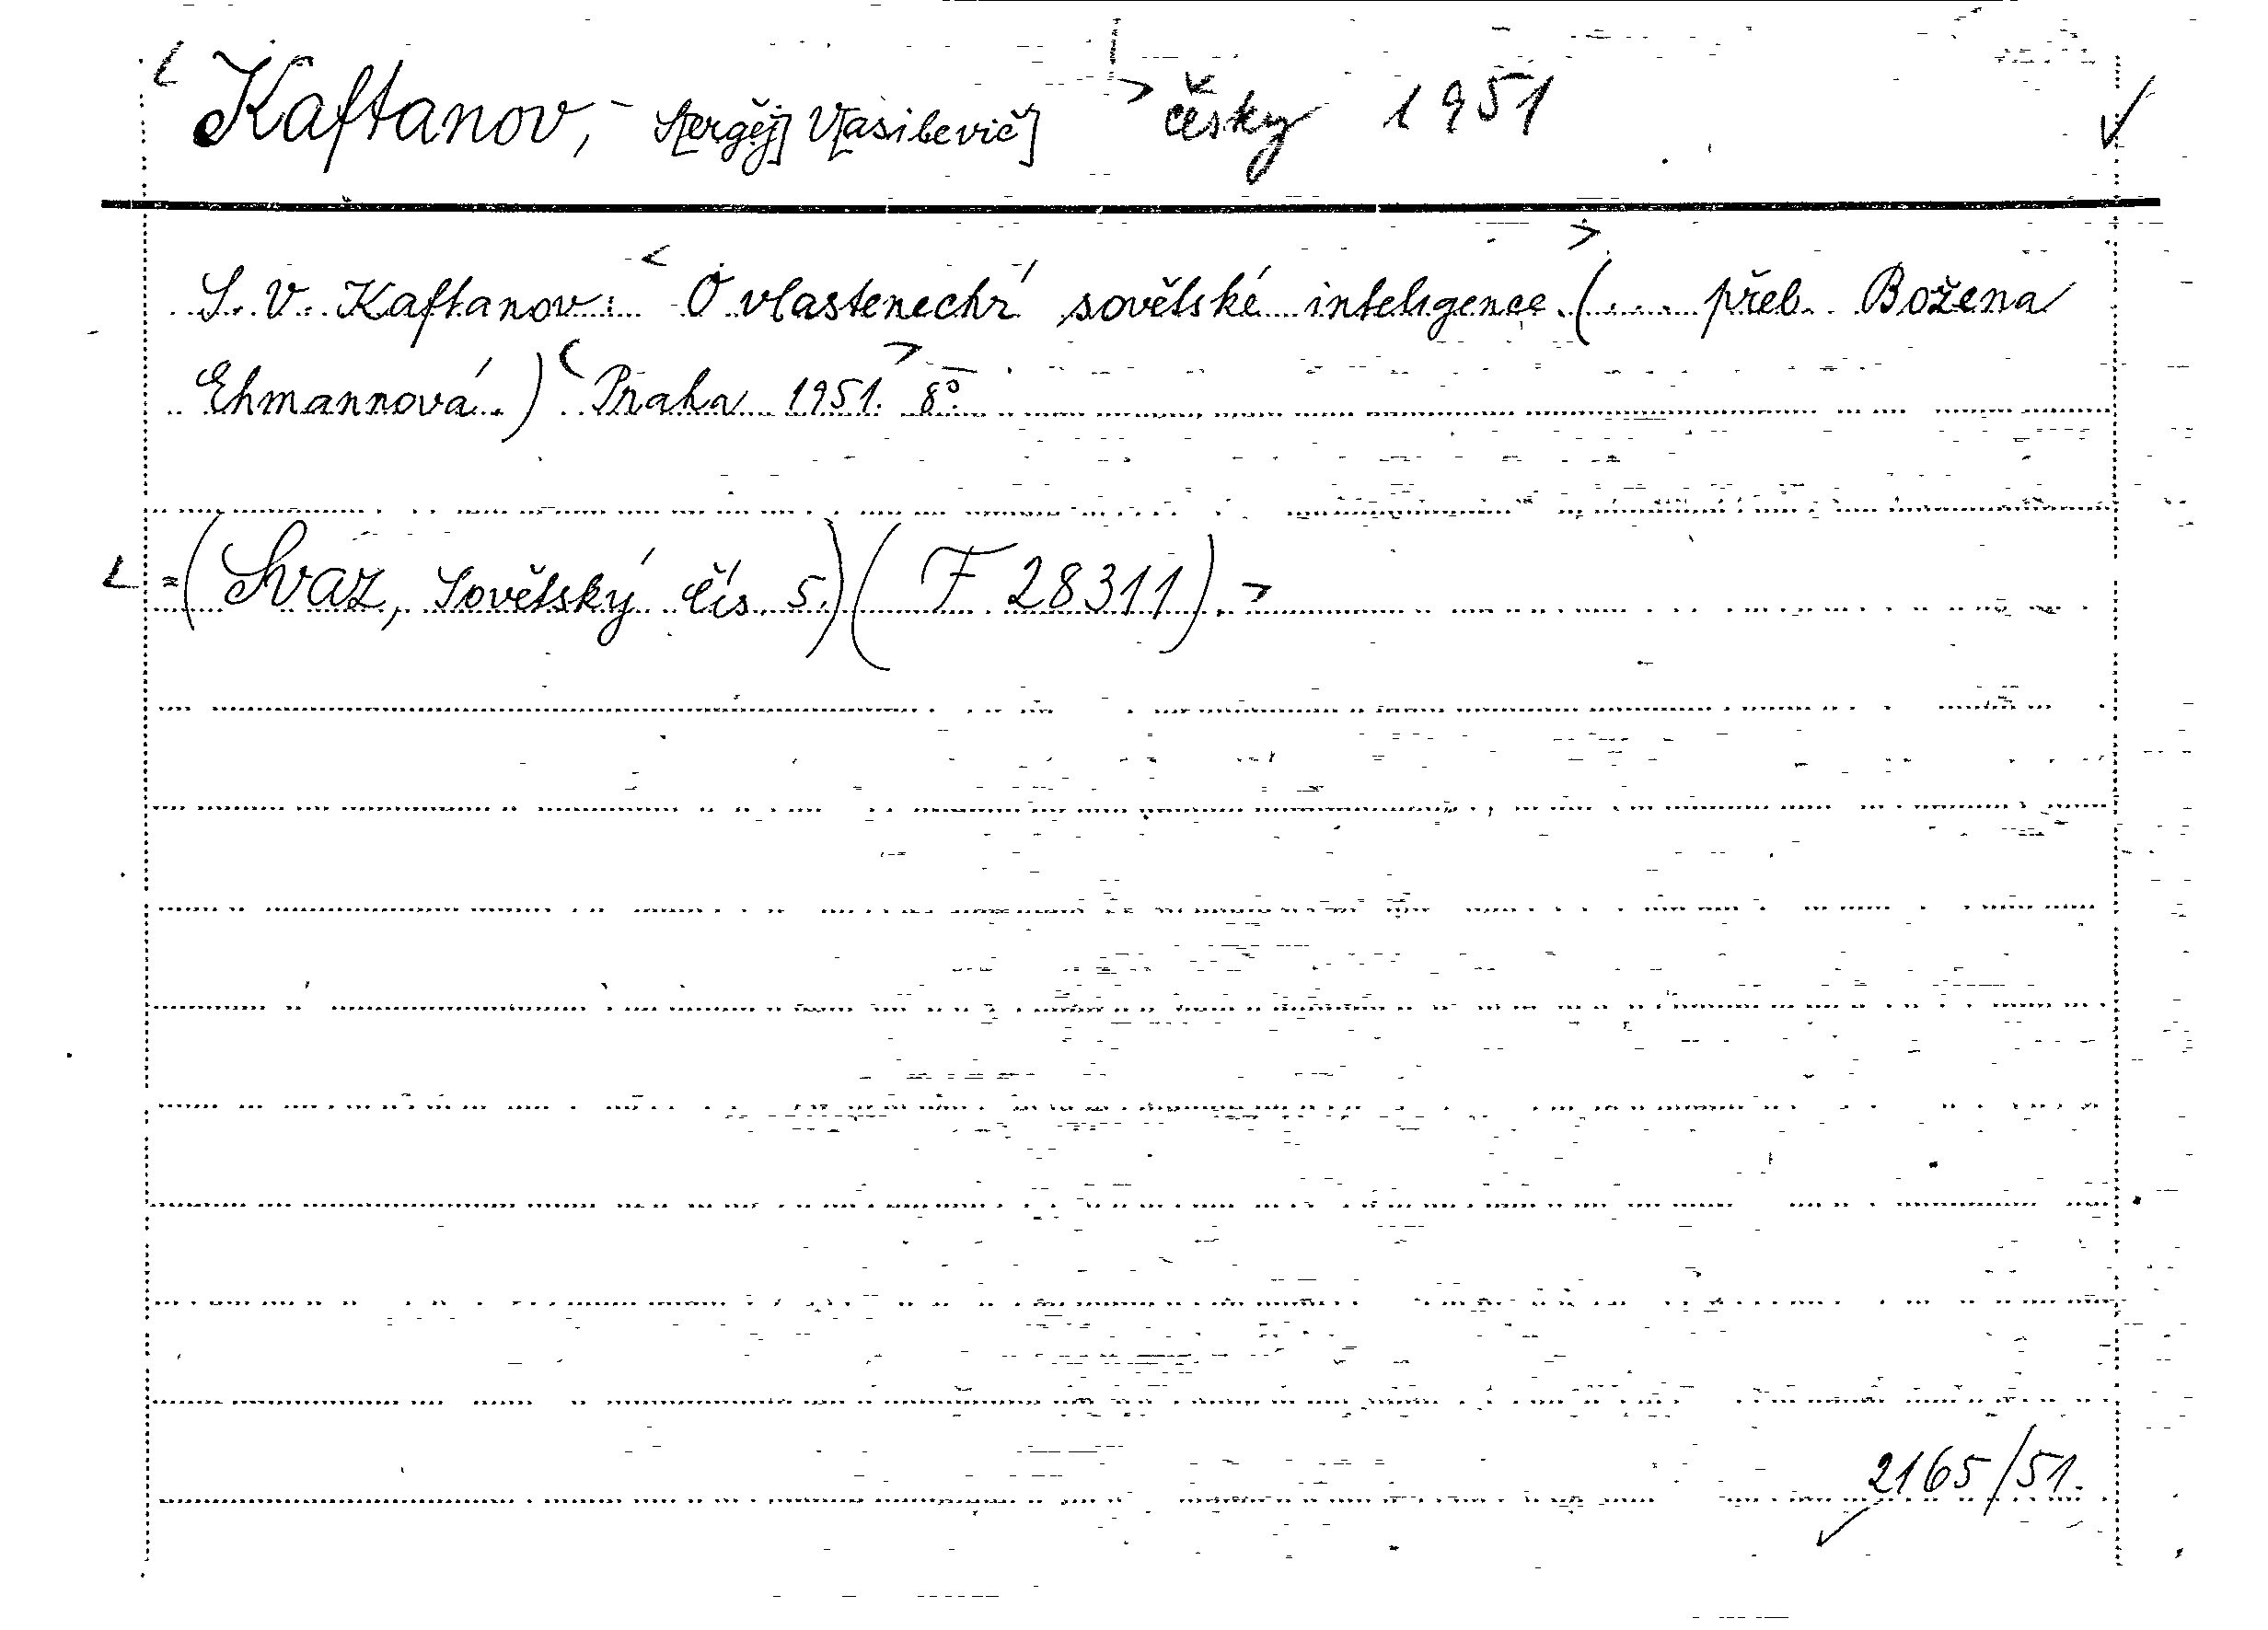 Kaftanov, S[ergěj] V[asilevič] česky 1951
S. V. Kaftanov: O vlastenectví sovětské inteligence. (... přel. Božena
Ehmannová.) Praha 1951. 8°.
=(Svaz, Sovětský čís. 5.) (F 28311).
2165/51.